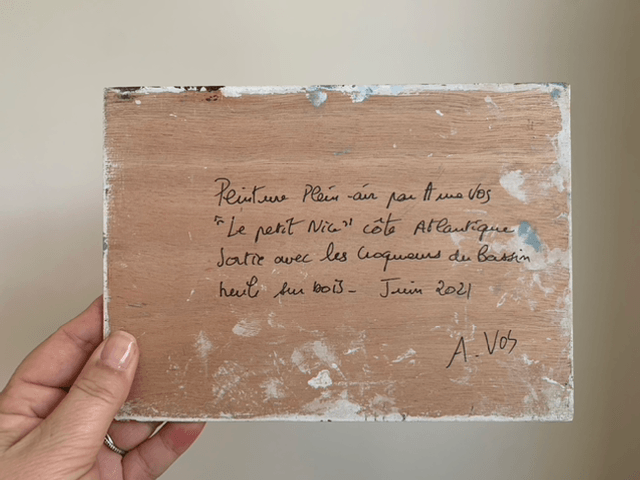 Peinture Plein-air par Anna Vos
"Le petit Nice" côte Atlantique
Sortie avec les Croqueurs du Bassin
huile sur bois - Juin 2021
A. Vos